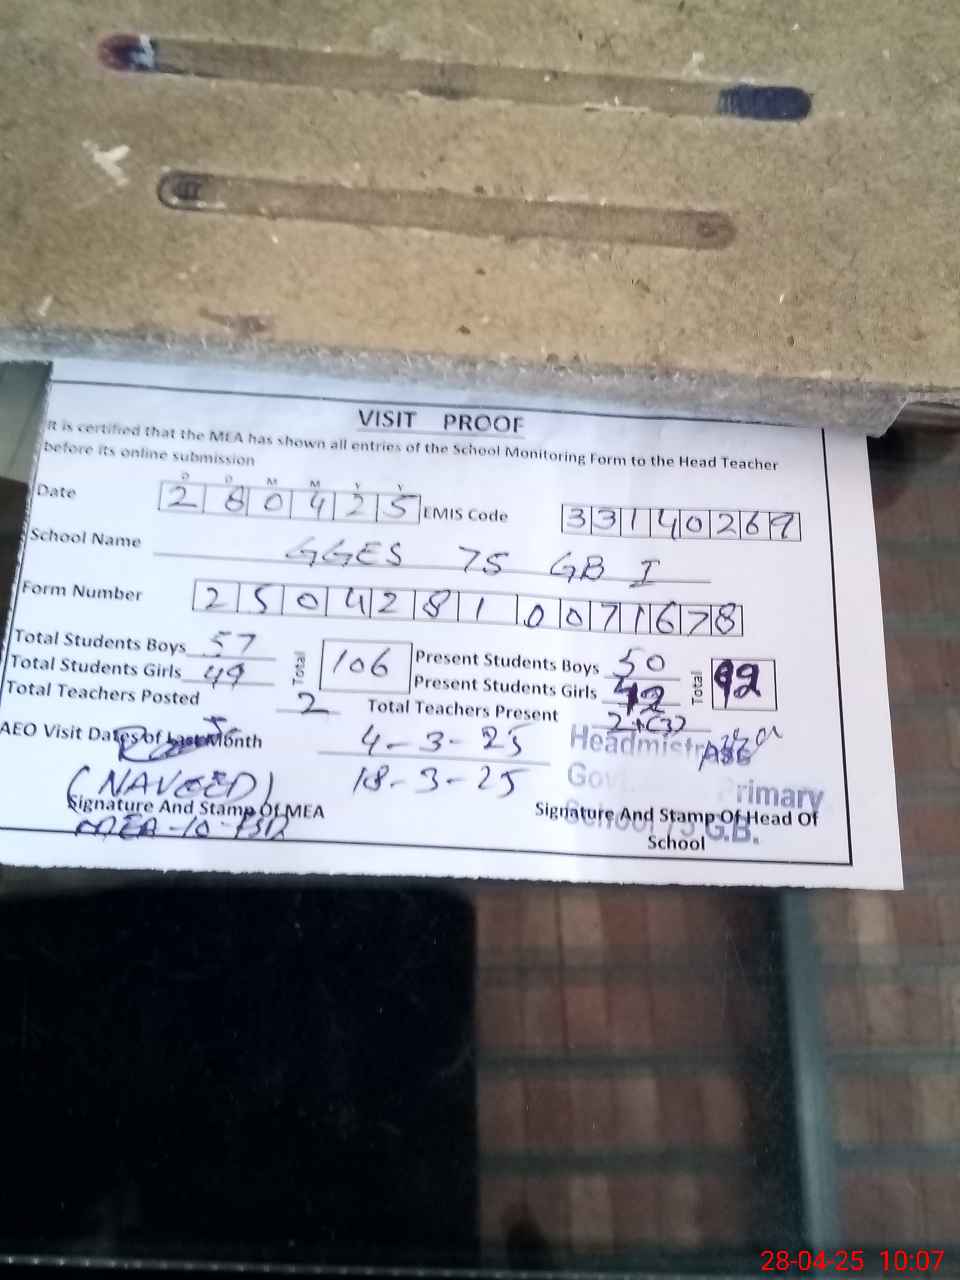 VISIT PROOF
It is certified that the MEA has shown all entries of the School Monitoring Form to the Head Teacher
before its online submission
D D M M Y Y
Date 280425 EMIS Code 33140269
School Name GGES 75 GB I
Form Number 25042810071678
Total Students Boys 57 Total 106 Present Students Boys 50 Total 92
Total Students Girls 49 Present Students Girls 42
Total Teachers Posted 2 Total Teachers Present 2+(3)
AEO Visit Dates of Last Month 4-3-25
18-3-25
Headmistress
Primary
School 75 G.B.
(NAVEED)
Signature And Stamp Of MEA
MEA-10-FSD
Signature And Stamp Of Head Of
School
28-04-25 10:07